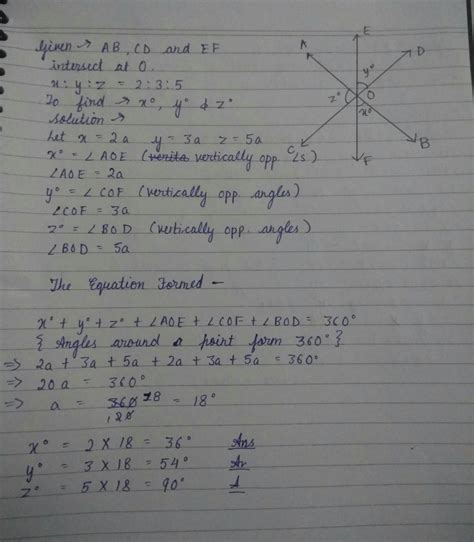 Given → AB, CD and EF
intersect at O.
x : y : z = 2 : 3 : 5
To find → x°, y° & z°
solution →
Let x = 2a y = 3a z = 5a
x° = ∠AOE (verita vertically opp. ∠s)
∠AOE = 2a
y° = ∠COF (vertically opp. angles)
∠COF = 3a
z° = ∠BOD (vertically opp. angles)
∠BOD = 5a
E
A
D
y°
z°
O
x°
C
B
F
The Equation Formed —
x° + y° + z° + ∠AOE + ∠COF + ∠BOD = 360°
{ Angles around a point form 360° }
⇒ 2a + 3a + 5a + 2a + 3a + 5a = 360°
⇒ 20a = 360°
⇒ a = 360 18 / 20 = 18°
x° = 2 × 18 = 36° Ans
y° = 3 × 18 = 54° Ar
z° = 5 × 18 = 90° A